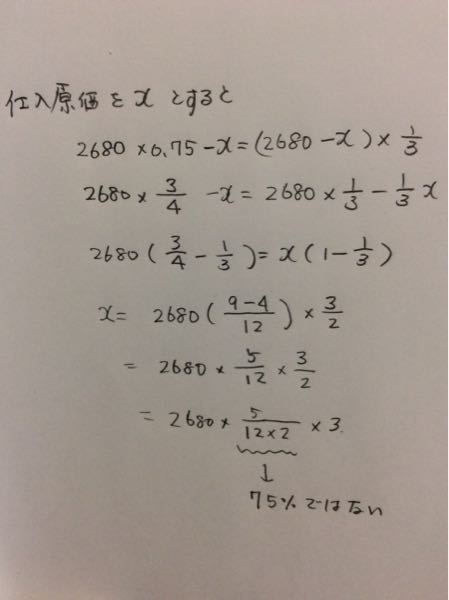 仕入原価を x とすると
2680 × 0.75 - x = (2680 - x) × 1/3
2680 × 3/4 - x = 2680 × 1/3 - 1/3 x
2680 ( 3/4 - 1/3 ) = x ( 1 - 1/3 )
x = 2680 ( 9-4/12 ) × 3/2
= 2680 × 5/12 × 3/2
= 2680 × 5/12×2 × 3.
↓
75%ではない